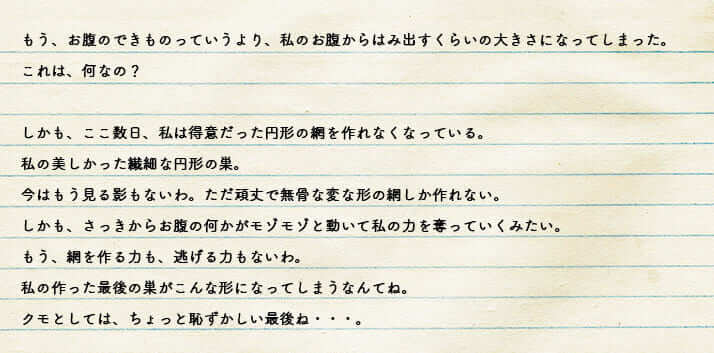 もう、お腹のできものっていうより、私のお腹からはみ出すくらいの大きさになってしまった。
これは、何なの？
しかも、ここ数日、私は得意だった円形の網を作れなくなっている。
私の美しかった繊細な円形の巣。
今はもう見る影もないわ。ただ頑丈で無骨な変な形の網しか作れない。
しかも、さっきからお腹の何かがモゾモゾと動いて私の力を奪っていくみたい。
もう、網を作る力も、逃げる力もないわ。
私の作った最後の巣がこんな形になってしまうなんてね。
クモとしては、ちょっと恥ずかしい最後ね・・・。